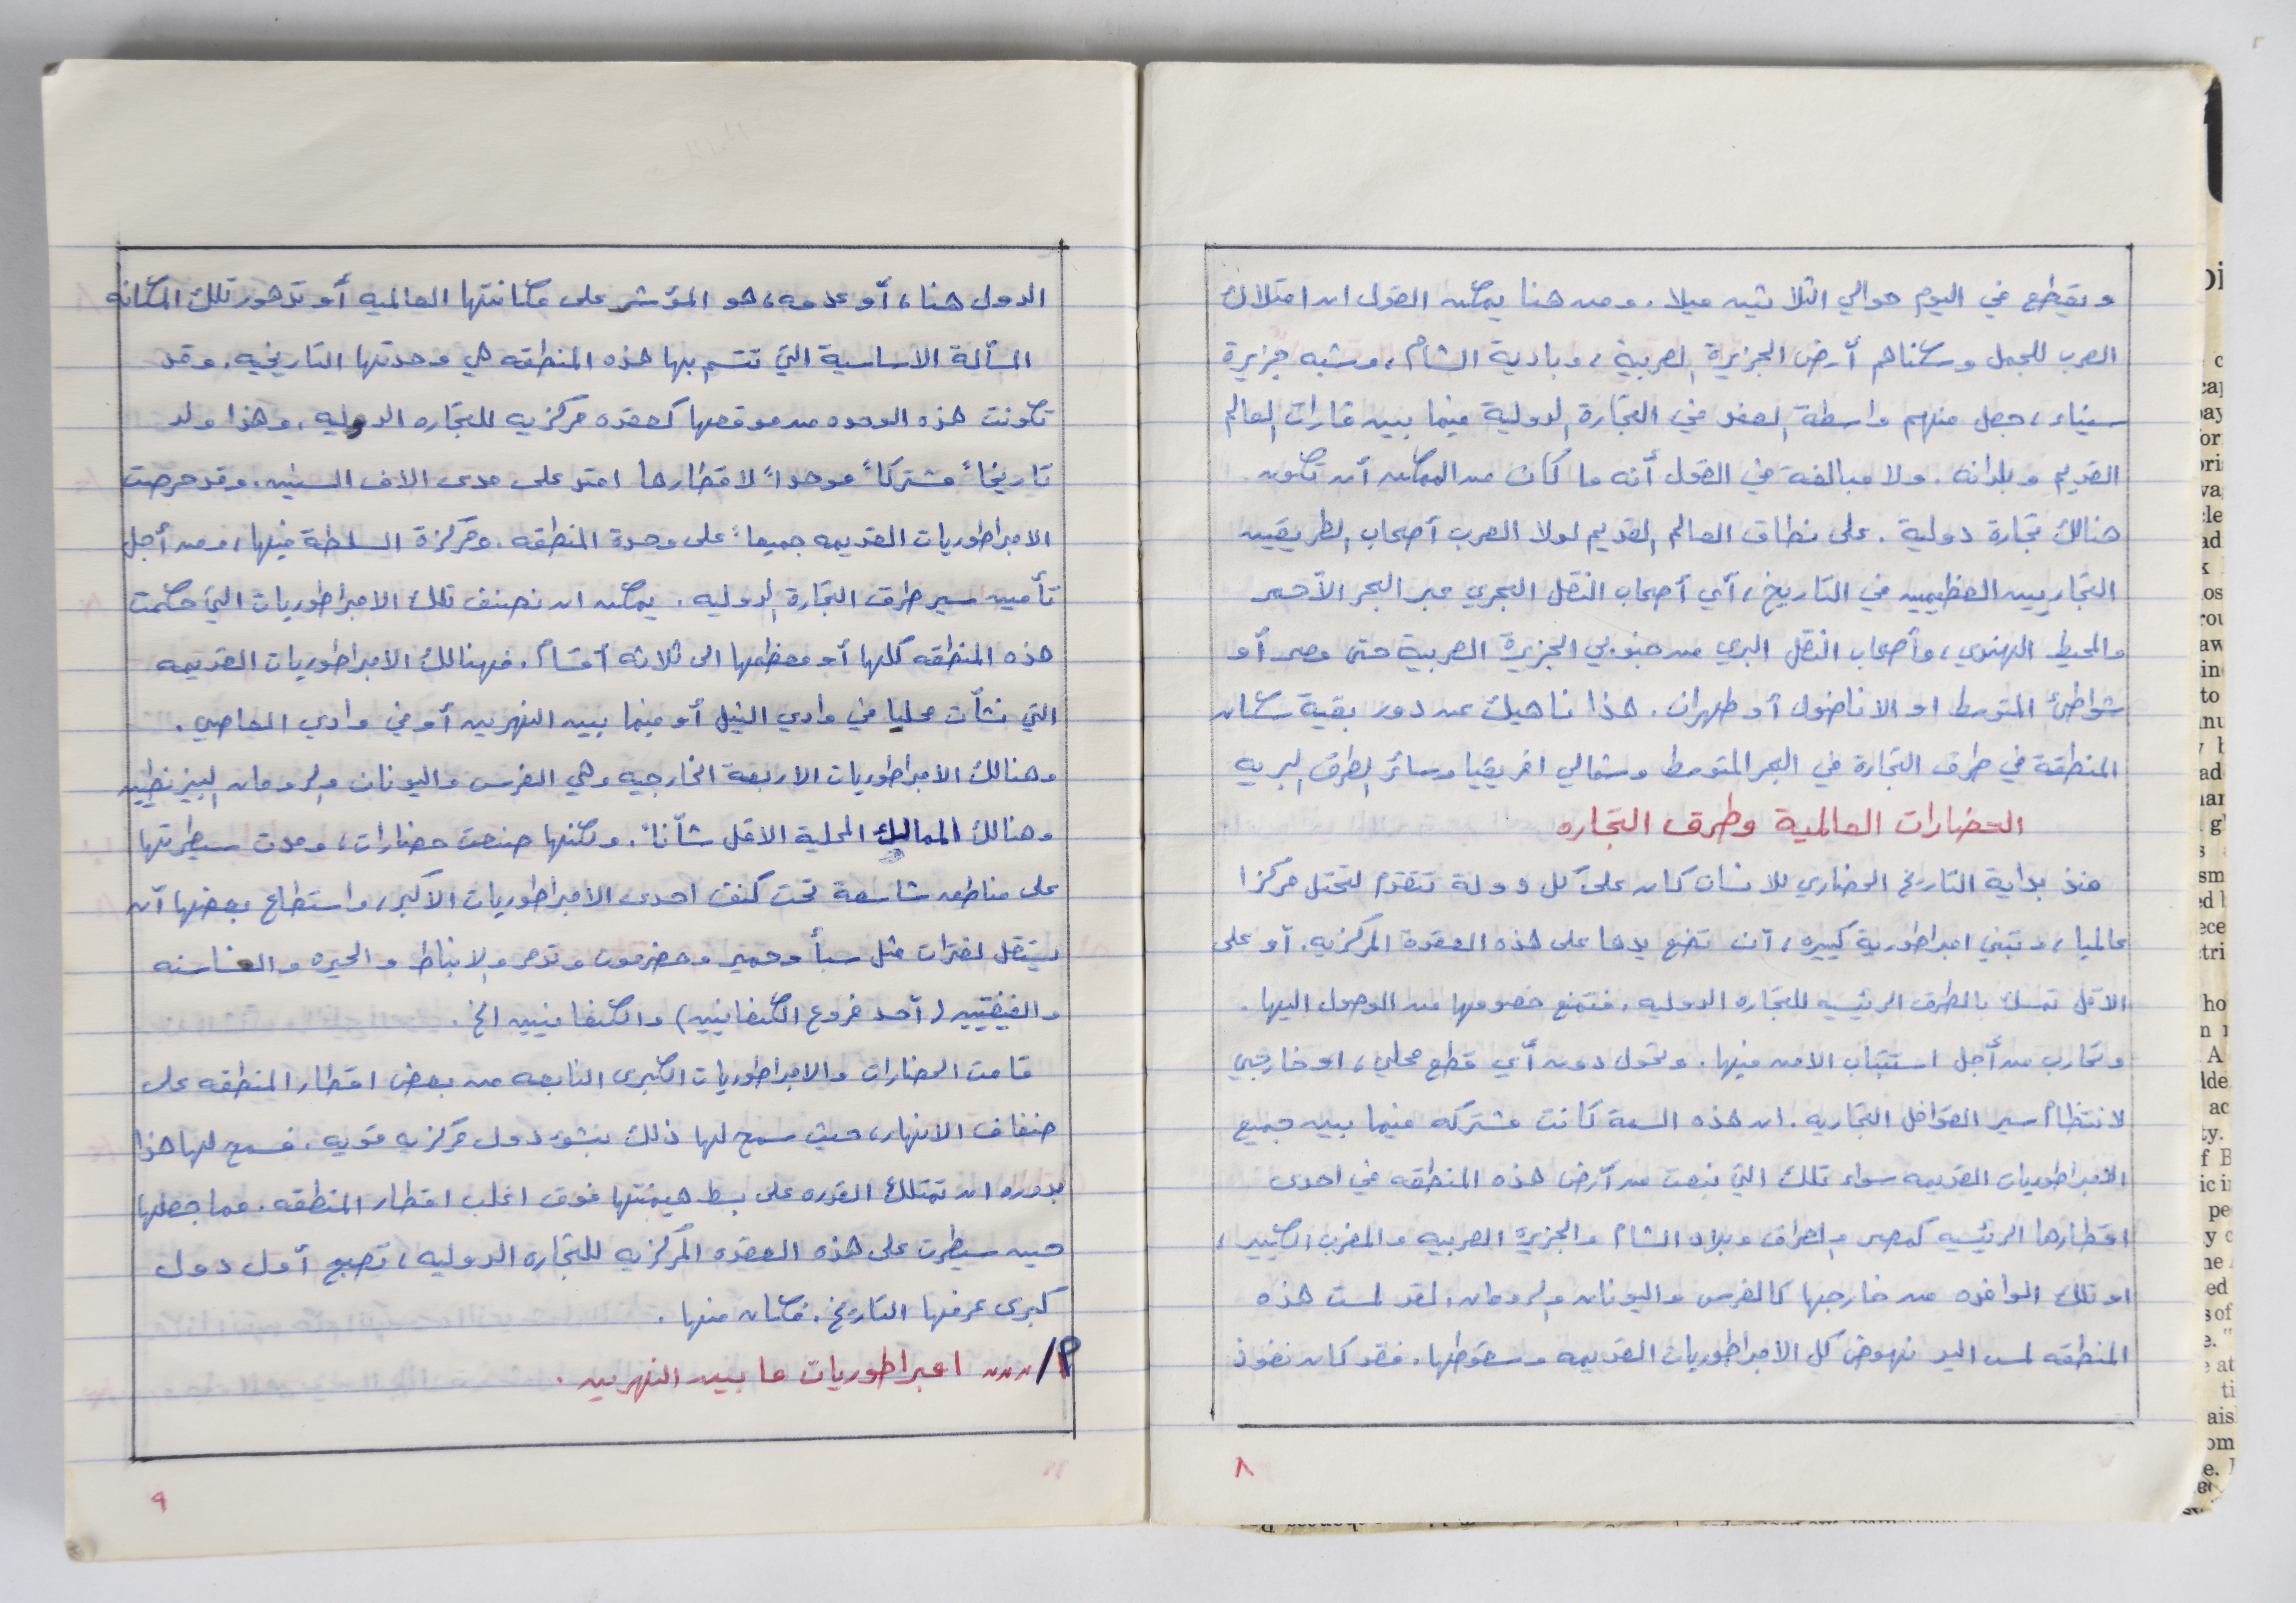 ويقطع في اليوم حوالي الثلاثين ميلا. ومن هنا يمكن القول ان امتلاك
العرب للجمل وسكناهم أرض الجزيرة العربية، وبادية الشام، وشبه جزيرة
سيناء، جعل منهم واسطة العقد في التجارة الدولية فيما بين قارات العالم
القديم وبلدانه. ولا مبالغة في القول أنه ما كان من الممكن أن تكون
هنالك تجارة دولية. على نطاق العالم القديم لولا العرب أصحاب الطريقين
التجاريين العظيمين في التاريخ، أي أصحاب النقل البحري عبر البحر الأحمر
والمحيط الهندي، وأصحاب النقل البري من جنوبي الجزيرة العربية حتى مصر أو
شواطئ المتوسط او الاناضول أو طهران. هذا ناهيك عن دور بقية سكان
المنطقة في طرق التجارة في البحر المتوسط وشمالي افريقيا وسائر الطرق البريه
الحضارات العالمية وطرق التجاره
منذ بداية التاريخ الحضاري للانسان كان على كل دولة تتقدم لتحتل مركزا
عالميا، وتبني امبراطورية كبيره، أن تضع يدها على هذه العقدة المركزيه. أو على
الاقل تمسك بالطرق الرئيسيه للتجاره الدوليه. فتمنع خصومها من الوصول اليها.
وتحارب من أجل استتباب الامن فيها. وتحول دون أي قطع محلي، او خارجي
لانتظام سير القوافل التجاريه. ان هذه السمة كانت مشتركه فيما بين جميع
الامبراطوريات القديمه سواء تلك التي نبعت من أرض هذه المنطقه في احدى
اقطارها الرئيسيه كمصر والعراق وبلاد الشام والجزيرة العربيه والمغرب الكبير،
او تلك الوافده من خارجها كالفرس واليونان والرومان. لقد لمست هذه
المنطقه لمس اليد نهوض كل الامبراطوريات القديمه وسقوطها. فقد كان نفوذ
٨
الدول هنا، أو عدمه، هو المؤشر على مكانتها العالميه أو تدهور تلك المكانه
المسألة الاساسية التي تتسم بها هذه المنطقه هي وحدتها التاريخيه. وقد
تكونت هذه الوحده من موقعها كعقده مركزيه للتجاره الدوليه. وهذا ولد
تاريخاً مشتركاً موحداً لاقطارها امتد على مدى الاف السنين. وقد حرصت
الامبراطوريات القديمه جميعاً على وحدة المنطقه. ومركزة السلطة فيها، ومن أجل
تأمين سير طرق التجارة الدوليه. يمكن ان نصنف تلك الامبراطوريات التي حكمت
هذه المنطقه كلها أو معظمها الى ثلاثه أقسام. فهنالك الامبراطوريات القديمه
التي نشأت محليا في وادي النيل أو فيما بين النهرين أو في وادي العاصي.
وهنالك الامبراطوريات الاربعة الخارجيه وهي الفرس واليونان والرومان البيزنطيين
وهنالك الممالك المحلية الاقل شأناً. ولكنها صنعت حضارات، ومدت سيطرتها
على مناطق شاسعة تحت كنف احدى الامبراطوريات الأكبر، واستطاع بعضها أن
يستقل لفترات مثل سبأ وحمير وحضرموت وتدمر والانباط والحيره والغساسنه
والفينقيين (أحد فروع الكنعانيين) والكنعانيين الخ.
قامت الحضارات والامبراطوريات الكبرى النابعه من بعض اقطار المنطقه على
ضفاف الأنهار، حيث سمح لها ذلك بنشوء دول مركزيه قويه. فسمح لها هذا
بدوره ان تمتلك القدره على بسط هيمنتها فوق اغلب اقطار المنطقه. مما جعلها
حين سيطرت على هذه العقده المركزيه للتجاره الدوليه، تصبح أول دول
كبرى عرفها التاريخ. فكان منها.
امبراطوريات ما بين النهرين.
٩